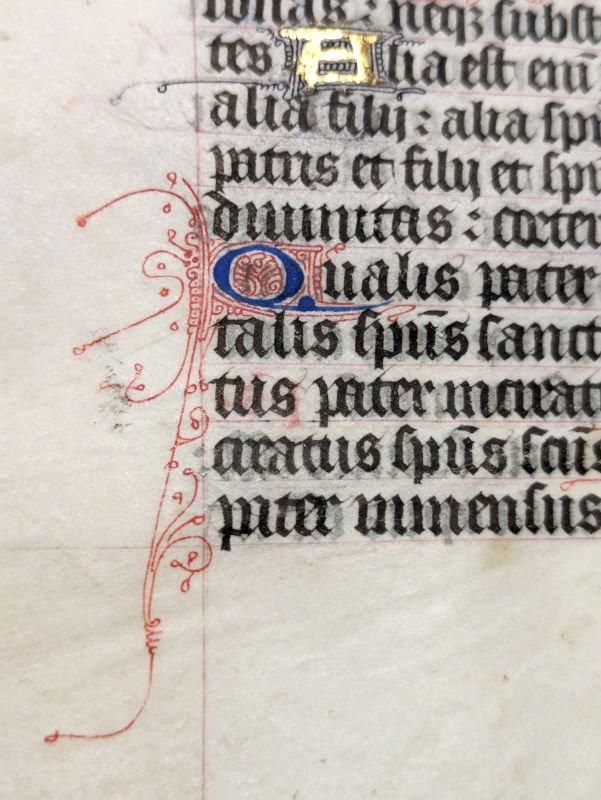 sonas : neqz subst
tes Alia est eni
alia filij : alia spi
patris et filij et spi
diuinitas : coeter
Qualis pater
talis spūs sanct
tus pater increat
creatus spūs scūs
pater immensus